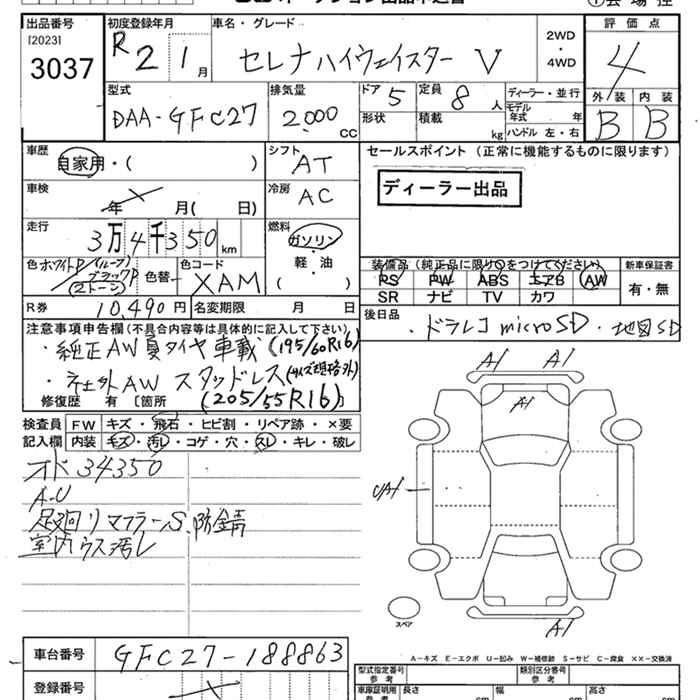 出品番号 初度登録年月 車名・グレード 評価点
[2023] 3037
R2 1月 セレナハイウェイスター V 2WD・4WD 4
型式 排気量 ドア 5 定員 8人 ディーラー・並行 外装 内装
DAA-GFC27 2.000cc 形状 積載 kg モデル年式 年 B B
ハンドル 左・右
車歴 シフト セールスポイント(正常に機能するものに限ります)
自家用・( ) AT
ディーラー出品
車検 年 月( 日) 冷房 AC
走行 3万4千350km 燃料 ガソリン
軽・油
( )
色 ホワイトP(ルーフ) ブラックP (2トーン) 色替 色コード XAM
装備品(純正品に限り○をつけてください) 新車保証書
PS PW ABS エアB AW 有・無
SR ナビ TV カワ
R券 10,490円 名変期限 月 日
後日品 ・ドラレコmicroSD・地図SD
注意事項申告欄(不具合内容等は具体的に記入して下さい)
・純正AW夏タイヤ車載(195/60R16)
・社外AW スタッドレス(サイズ規格外)
修復歴 有 [箇所 (205/55R16)]
検査員 FW キズ・飛石・ヒビ割・リペア跡・×要
記入欄 内装 キズ・汚レ・コゲ・穴・スレ・キレ・破レ
オド34350
A-U
足廻リマフラーS、防錆
室内ウス汚レ
A1 A1
A1
U/A1
A1
スペア
A-キズ E-エクボ U-凹み W-補修跡 S-サビ C-腐食 ××-交換済
車台番号 GFC27-188863
型式指定番号 参考 類別区分番号 参考
登録番号
車庫証明用 参考 長さ cm 幅 cm 高さ cm